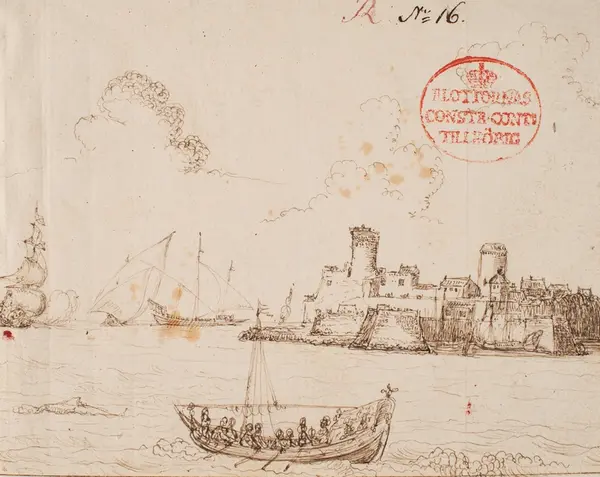 R. No 16.
FLOTTORNAS
CONSTR·CONT:
TILLHÖRIG